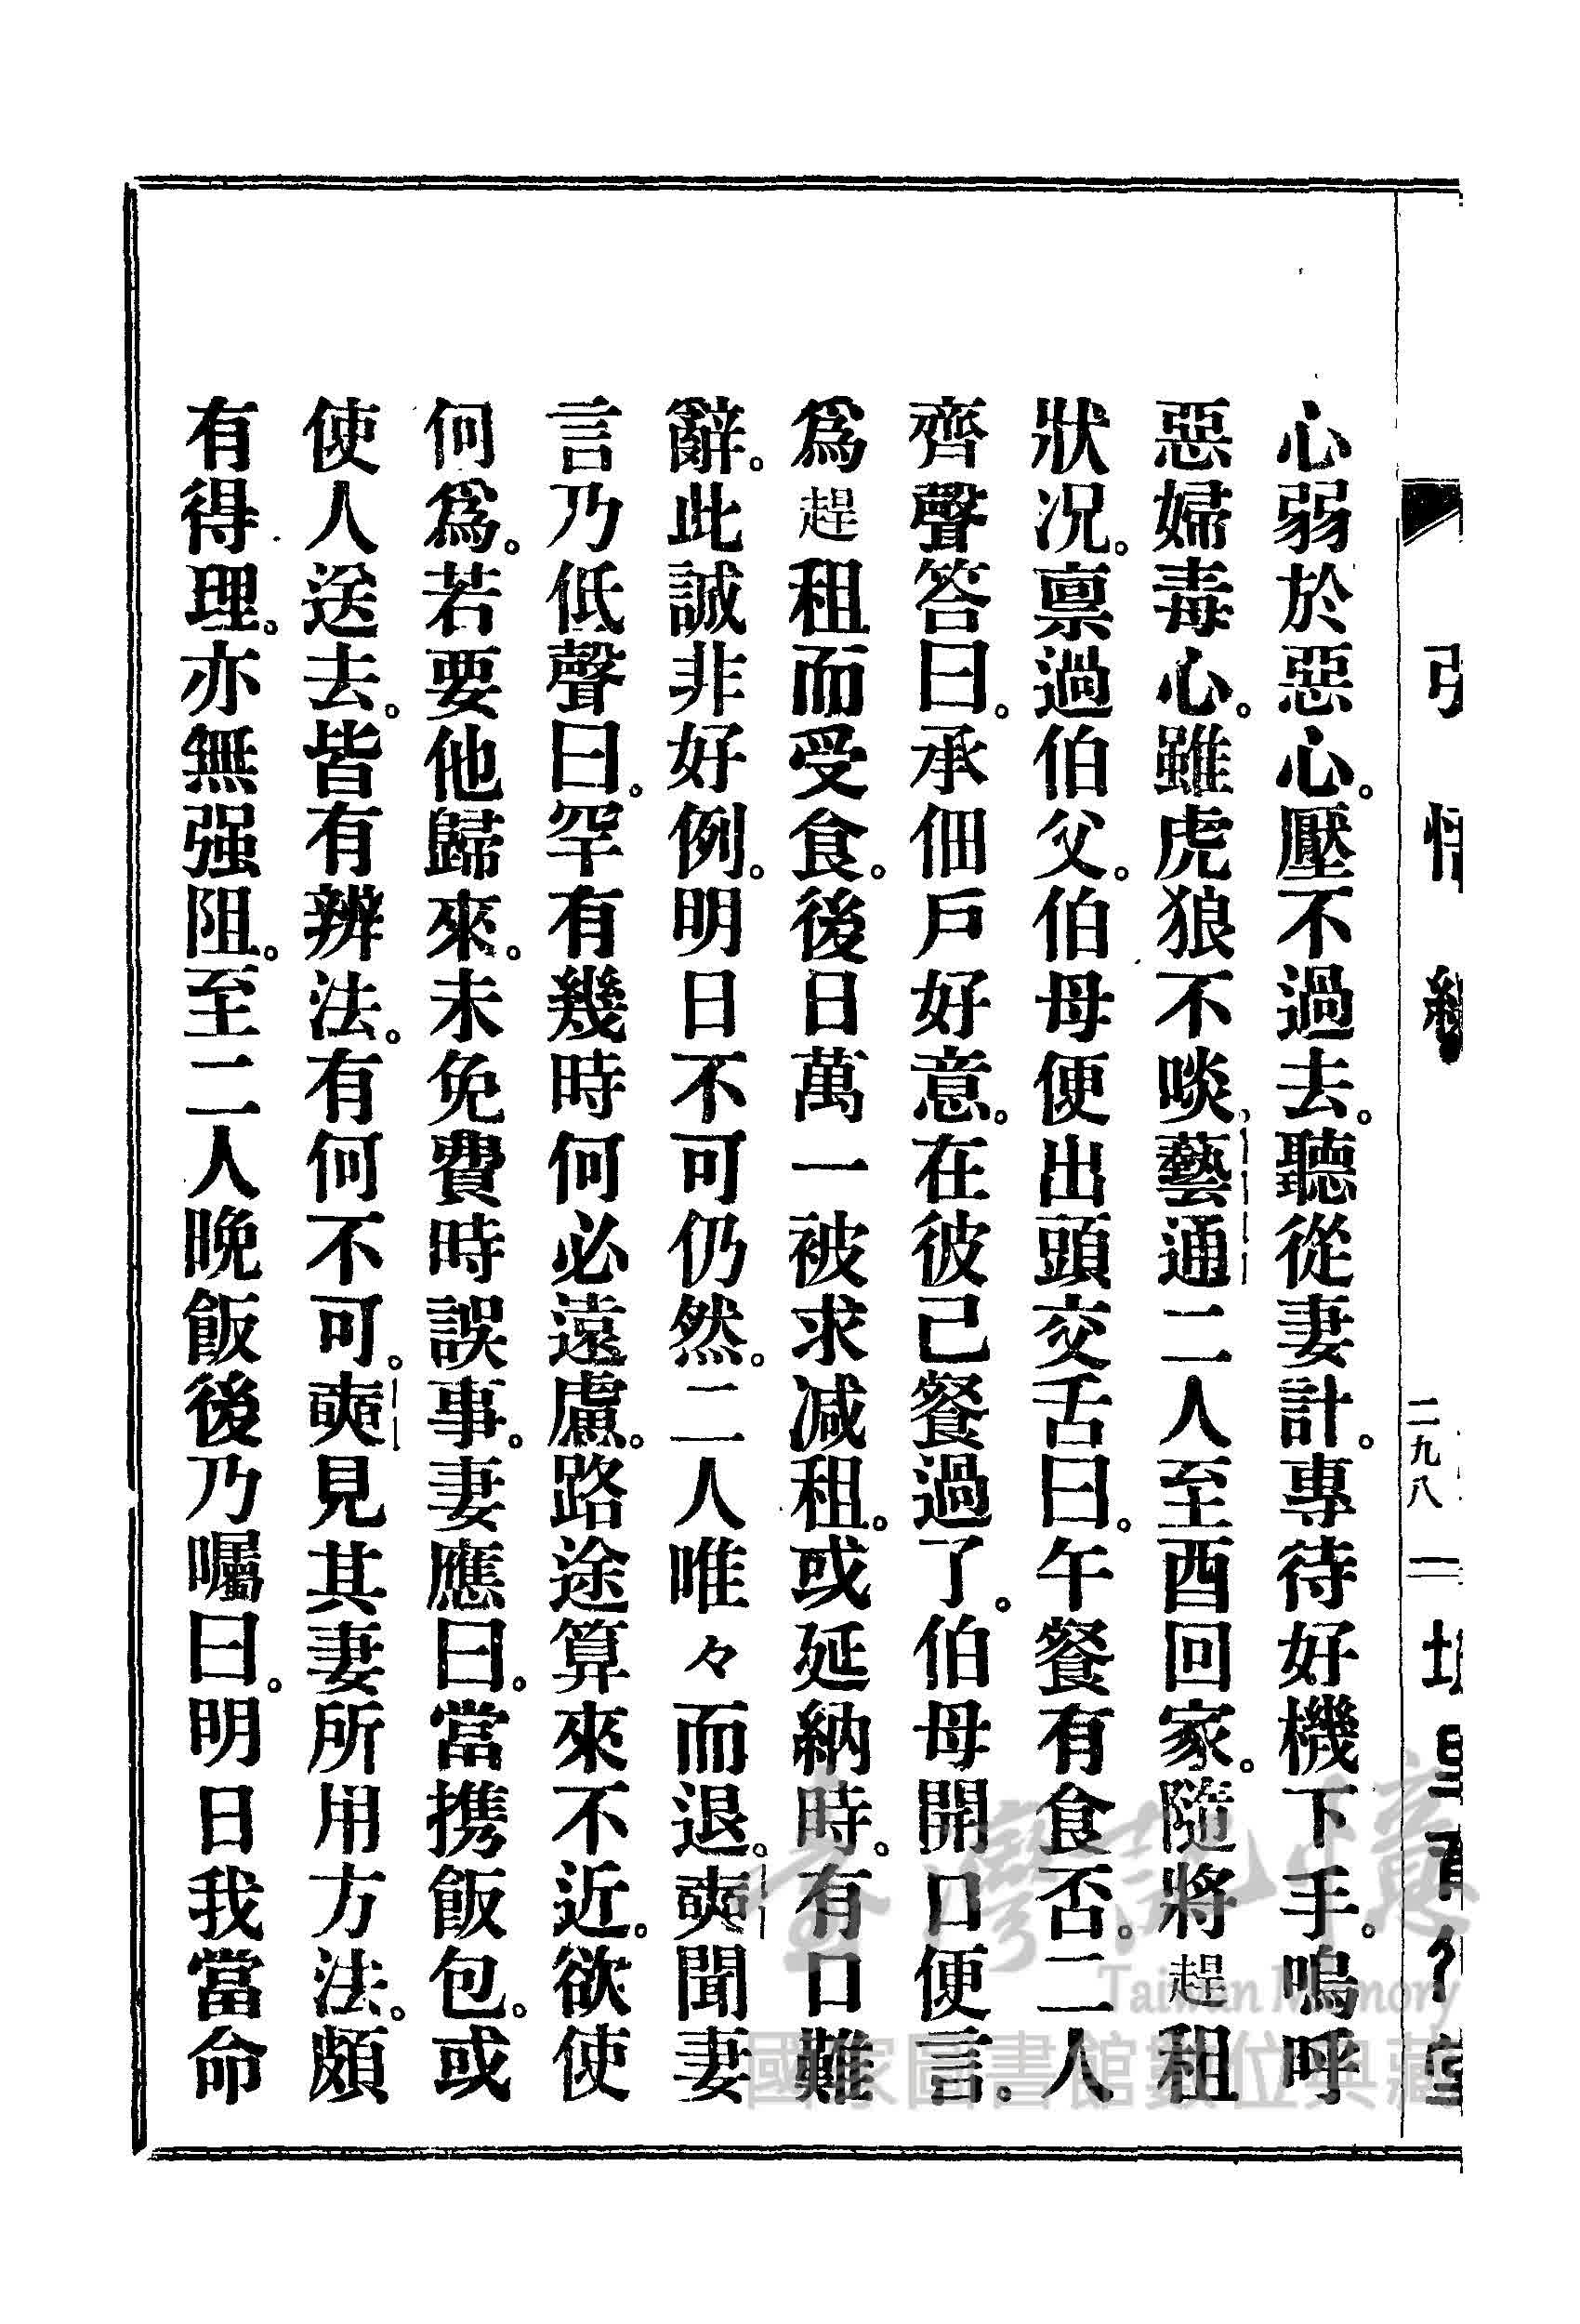 二九八
心弱於惡心。壓不過去。聽從妻計。專待好機下手。嗚呼
惡婦毒心。雖虎狼不啖。藝通二人至酉回家。隨將趕租
狀況。禀過伯父。伯母便出頭交舌曰。午餐有食否。二人
齊聲答曰。承佃戶好意。在彼己餐過了。伯母開口便言。
爲趕租而受食。後日萬一被求減租。或延納時。有口難
辭。此誠非好例。明日不可仍然。二人唯々而退。奭聞妻
言乃低聲曰。罕有幾時何必遠慮。路途算來不近。欲使
何爲。若要他歸來。未免費時誤事。妻應曰。當携飯包。或
使人送去。皆有辨法。有何不可。奭見其妻所用方法。頗
有得理。亦無强阻。至二人晚飯後乃囑曰。明日我當命
臺灣記憶
Taiwan Memory
國家圖書館數位典藏